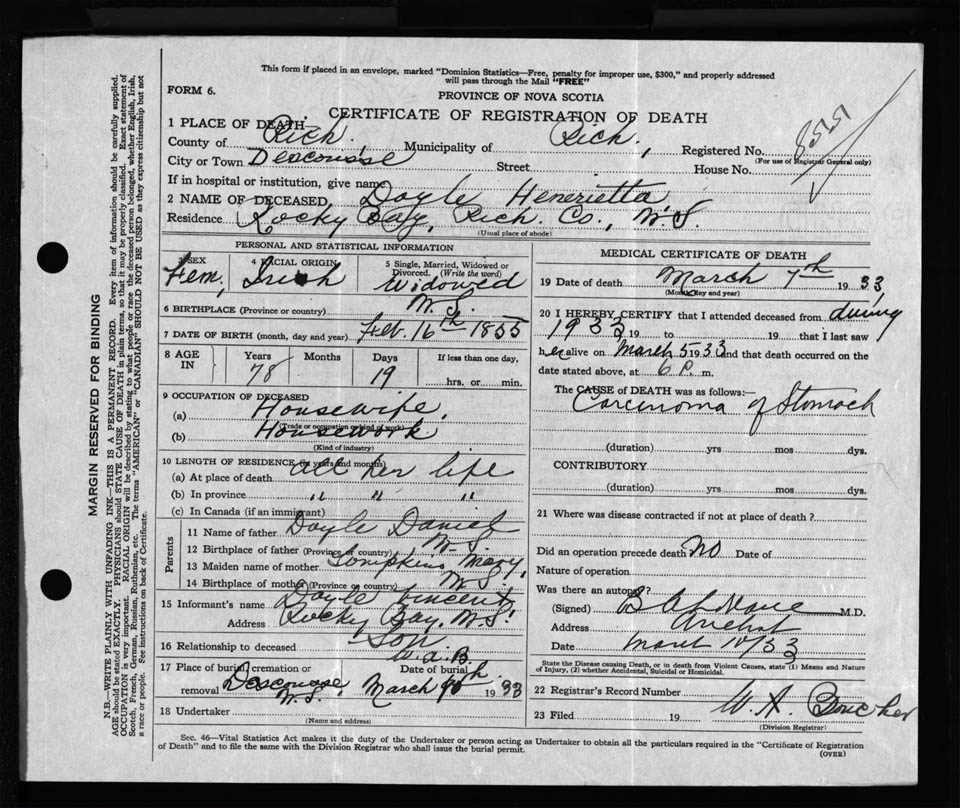 This form if placed in an envelope, marked "Dominion Statistics—Free, penalty for improper use, $300," and properly addressed
will pass through the Mail "FREE"
FORM 6.
PROVINCE OF NOVA SCOTIA
CERTIFICATE OF REGISTRATION OF DEATH
1 PLACE OF DEATH:
County of Rich. Municipality of Rich., Registered No.
(For use of Registrar General only)
City or Town Descousse Street House No.
If in hospital or institution, give name
2 NAME OF DECEASED, Doyle Henrietta
Residence Rocky Bay, Rich. Co., N.S.
(Usual place of abode)
PERSONAL AND STATISTICAL INFORMATION
3 SEX 4 RACIAL ORIGIN 5 Single, Married, Widowed or
Divorced. (Write the word)
Fem, Irish Widowed
6 BIRTHPLACE (Province or country) N.S.
7 DATE OF BIRTH (month, day and year) Feb. 16th 1855
8 AGE IN Years Months Days If less than one day,
78 19 hrs. or min.
9 OCCUPATION OF DECEASED
(a) Housewife,
(Trade or occupation kind of work)
(b) Housework
(Kind of industry)
10 LENGTH OF RESIDENCE (in years and months)
(a) At place of death all her life
(b) In province " " "
(c) In Canada (if an immigrant)
Parents
11 Name of father Doyle Daniel
12 Birthplace of father (Province or country) N.S.
13 Maiden name of mother Tompkins Mary,
14 Birthplace of mother (Province or country) N.S.
15 Informant's name Doyle Vincent
Address Rocky Bay, N.S.
16 Relationship to deceased Son
W.A.B.
17 Place of burial, cremation or removal Date of burial
Descousse N.S. March 10th 1933
18 Undertaker
(Name and address)
MEDICAL CERTIFICATE OF DEATH
19 Date of death March 7th 1933,
(Month, day and year)
20 I HEREBY CERTIFY that I attended deceased from during
1933 19 to 19 that I last saw
her alive on March 5 1933 and that death occurred on the
date stated above, at 6 P. m.
The CAUSE of DEATH was as follows:—
Carcinoma of Stomach
(duration) yrs mos dys.
CONTRIBUTORY
(duration) yrs mos dys.
21 Where was disease contracted if not at place of death?
Did an operation precede death No Date of
Nature of operation
Was there an autopsy?
(Signed) M.D.
Address Arichat
Date March
State the Disease causing Death, or in death from Violent Causes, state (1) Means and Nature
of Injury, (2) whether Accidental, Suicidal or Homicidal.
22 Registrar's Record Number
23 Filed 19 W. A. Boucher
(Division Registrar)
Sec. 46—Vital Statistics Act makes it the duty of the Undertaker or person acting as Undertaker to obtain all the particulars required in the "Certificate of Registration
of Death" and to file the same with the Division Registrar who shall issue the burial permit.
(OVER)
MARGIN RESERVED FOR BINDING
N.B.—WRITE PLAINLY WITH UNFADING INK—THIS IS A PERMANENT RECORD. Every item of information should be carefully supplied.
AGE should be stated EXACTLY. PHYSICIANS should STATE CAUSE OF DEATH in plain terms, so that it may be properly classified. Exact statement of
OCCUPATION is very important. RACIAL ORIGIN will be described by stating to what people or race the deceased person belonged, whether English, Irish,
Scotch, French, German, Russian, Ruthenian, etc. The terms "AMERICAN" or "CANADIAN" SHOULD NOT BE USED as they express citizenship but not
a race or people. See instructions on back of Certificate.